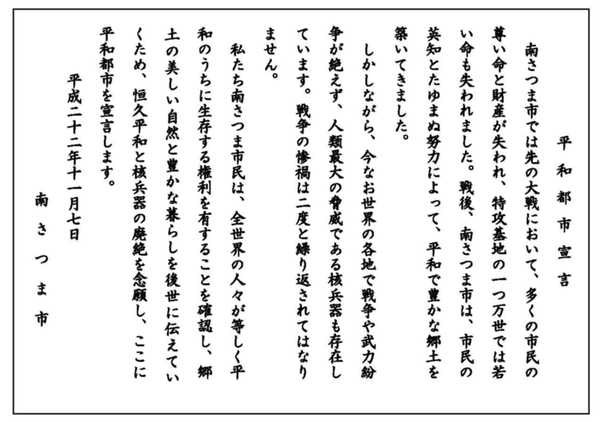 平和都市宣言
南さつま市では先の大戦において、多くの市民の
尊い命と財産が失われ、特攻基地の一つ万世では若
い命も失われました。戦後、南さつま市は、市民の
英知とたゆまぬ努力によって、平和で豊かな郷土を
築いてきました。
しかしながら、今なお世界の各地で戦争や武力紛
争が絶えず、人類最大の脅威である核兵器も存在し
ています。戦争の惨禍は二度と繰り返されてはなり
ません。
私たち南さつま市民は、全世界の人々が等しく平
和のうちに生存する権利を有することを確認し、郷
土の美しい自然と豊かな暮らしを後世に伝えてい
くため、恒久平和と核兵器の廃絶を念願し、ここに
平和都市を宣言します。
平成二十二年十一月七日
南さつま市